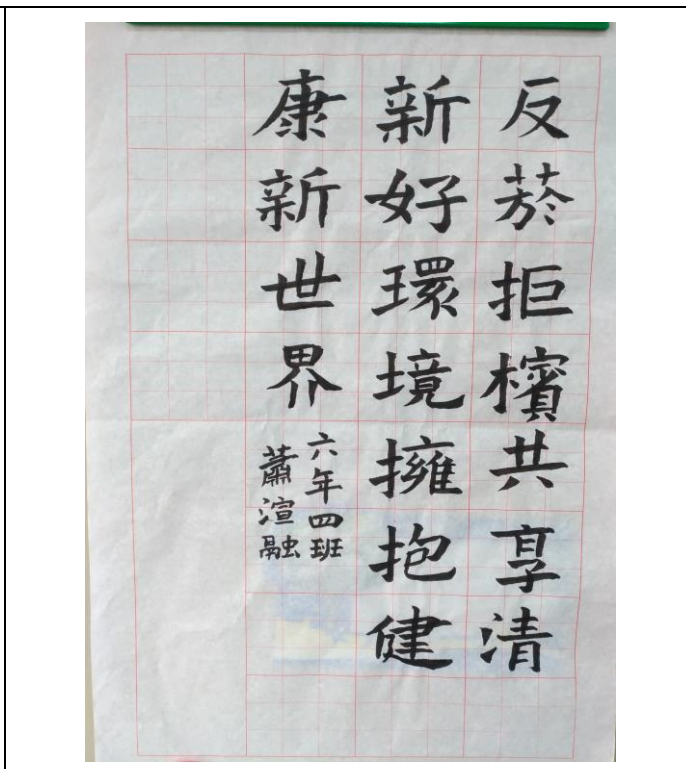 反菸拒檳共享清
新好環境擁抱健
康新世界
六年四班
蕭渲融